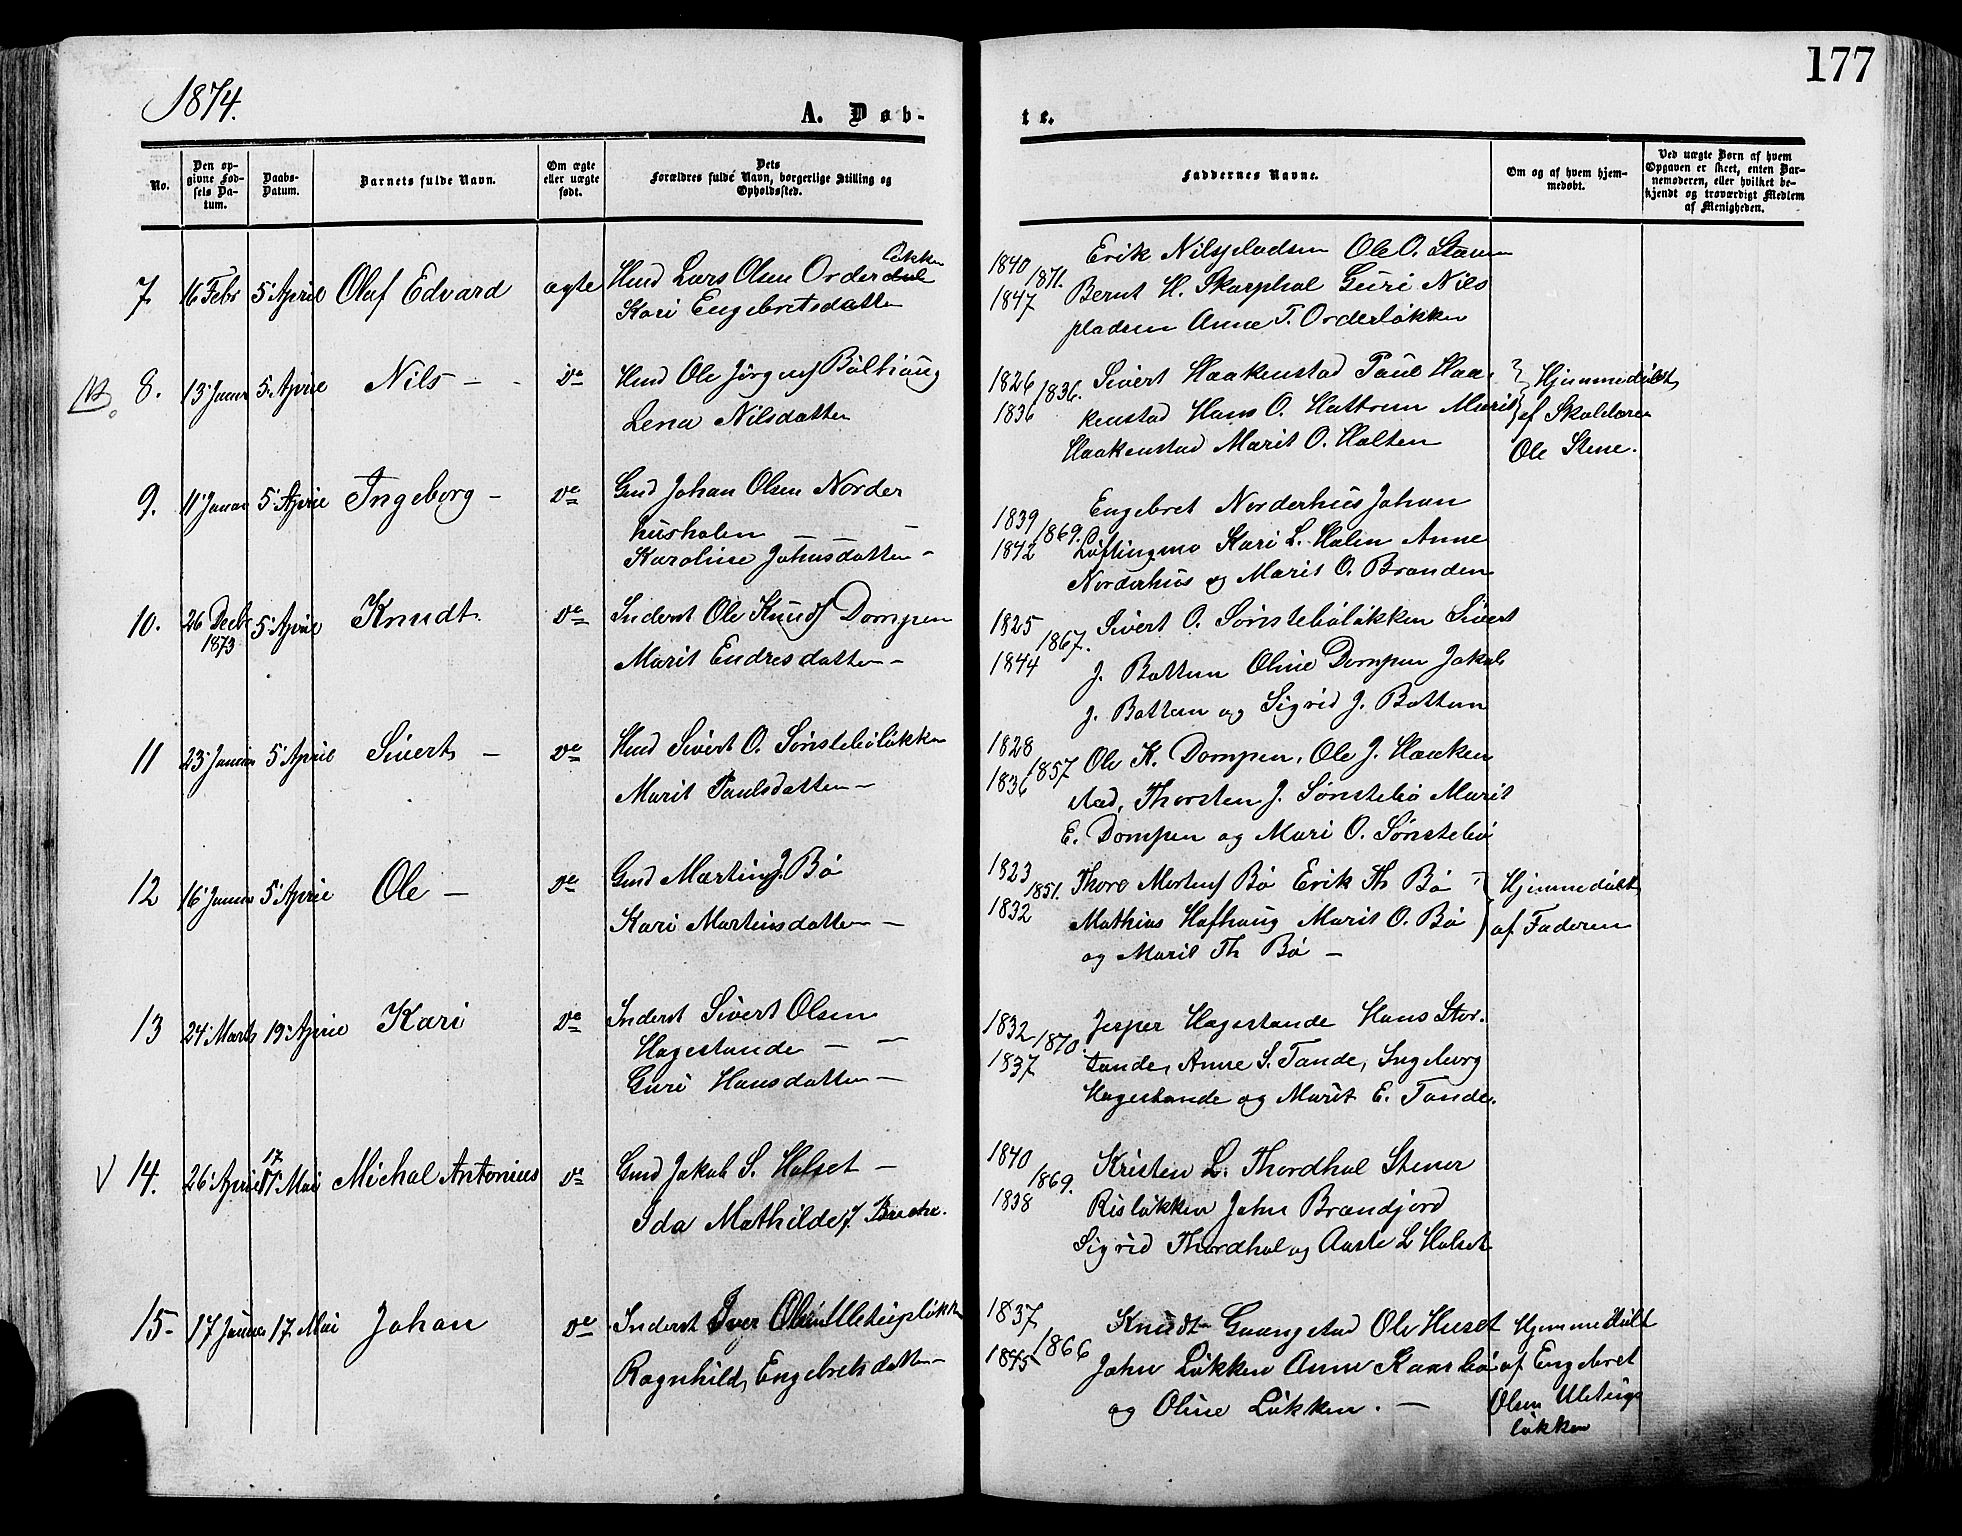 177
1874.
A. Døb-
te.
No.
Den op-
givne Fød-
sels Da-
tum.
Daabs-
Datum.
Barnets fulde Navn.
Om ægte
eller uægte
født.
Dets
Forældres fulde Navn, borgerlige Stilling og
Opholdssted.
Faddernes Navne.
Om og af hvem hjem-
medøbt.
Ved uægte Børn af hvem
Opgaven er skeet, enten Bar-
nemoderen, eller hvilket be-
kjendt og troværdigt Medlem
af Menigheden.
7. 16 Febr 5 April Olaf Edvard ægte Hmd Lars Olsen Order løkken
Kari Engebretsdatter
1840 1871. 1847
Erik Nilspladsen Ole O. Stamn
Bernt H. Skarphol Guri Nils
pladsen Anne T. Orderløkken
8. 13 Januar 5 April Nils - Do Hmd Ole Jørgens Bølhaug
Lena Nilsdatter
1826 1836. 1836
Sivert Haakenstad Paul Haa-
kenstad Hans O. Hattrem Marit
Haakenstad Marit O. Holten
Hjemmedøbt
af Skolelærer
Ole Stene.
9. 11 Januar 5 April Ingeborg - Do Gmd Johan Olsen Norder
husholen -
Karoline Johnsdatter -
1839 1869. 1842
Engebret Norderhus Johan
Løftingsmo Kari L. Holen Anne
Norderhus og Marit O. Branden
10. 26 Decbr 1873 5 April Knudt Do Inderst Ole Knuds Dompen
Marit Endresdatter -
1825 1867. 1844
Sivert O. Sønsteboløkken Sivert
J. Bottem Oline Dompen Jakob
J. Bottem og Sigrid J. Bottem
11 23 Januar 5 April Sivert - Do Hmd Sivert O. Sønsteboløkken
Marit Paulsdatter -
1828 1857 1836
Ole K. Dompen, Ole J. Haaken
stad, Thorsten J. Sønstebø Marit
E. Dompen og Mari O. Sønstebø
12 16 Januar 5 April Ole - Do Gmd Martin J. Bø
Kari Martinsdatter -
1823 1851. 1832
Thore Mortens Bø Erik Th Bø
Mathias Hafhaug Marit O. Bø
og Marit Th Bø -
Hjemmedøbt
af Faderen
13 24 Marts 19 April Kari Do Inderst Sivert Olsen
Hagestande -
Guri Hansdatter -
1832 1870. 1837
Jesper Hagestande Hans Stor-
tande, Anne S. Tande, Ingeborg
Hagestande og Marit E. Tande.
V 14. 26 April 17 Mai Michal Antonius Do Gmd Jakob S. Holset -
Ida Mathilde f. Breche.
1840 1869. 1838
Kristen L. Thordhol Stener
Risløkken John Brandjord
Sigrid Thordhol og Aaste L Holset
15- 17 Januar 17 Mai Johan Do Inderst Iver Olsen Uletingsløkken
Ragnhild Engebretsdatter -
1837 1866 1845
Knudt Gaangstad Ole Huset
John Løkken Anne Kaasbø
og Oline Løkken. -
Hjemmedøbt
af Engebret
Olsen Uletings
løkken